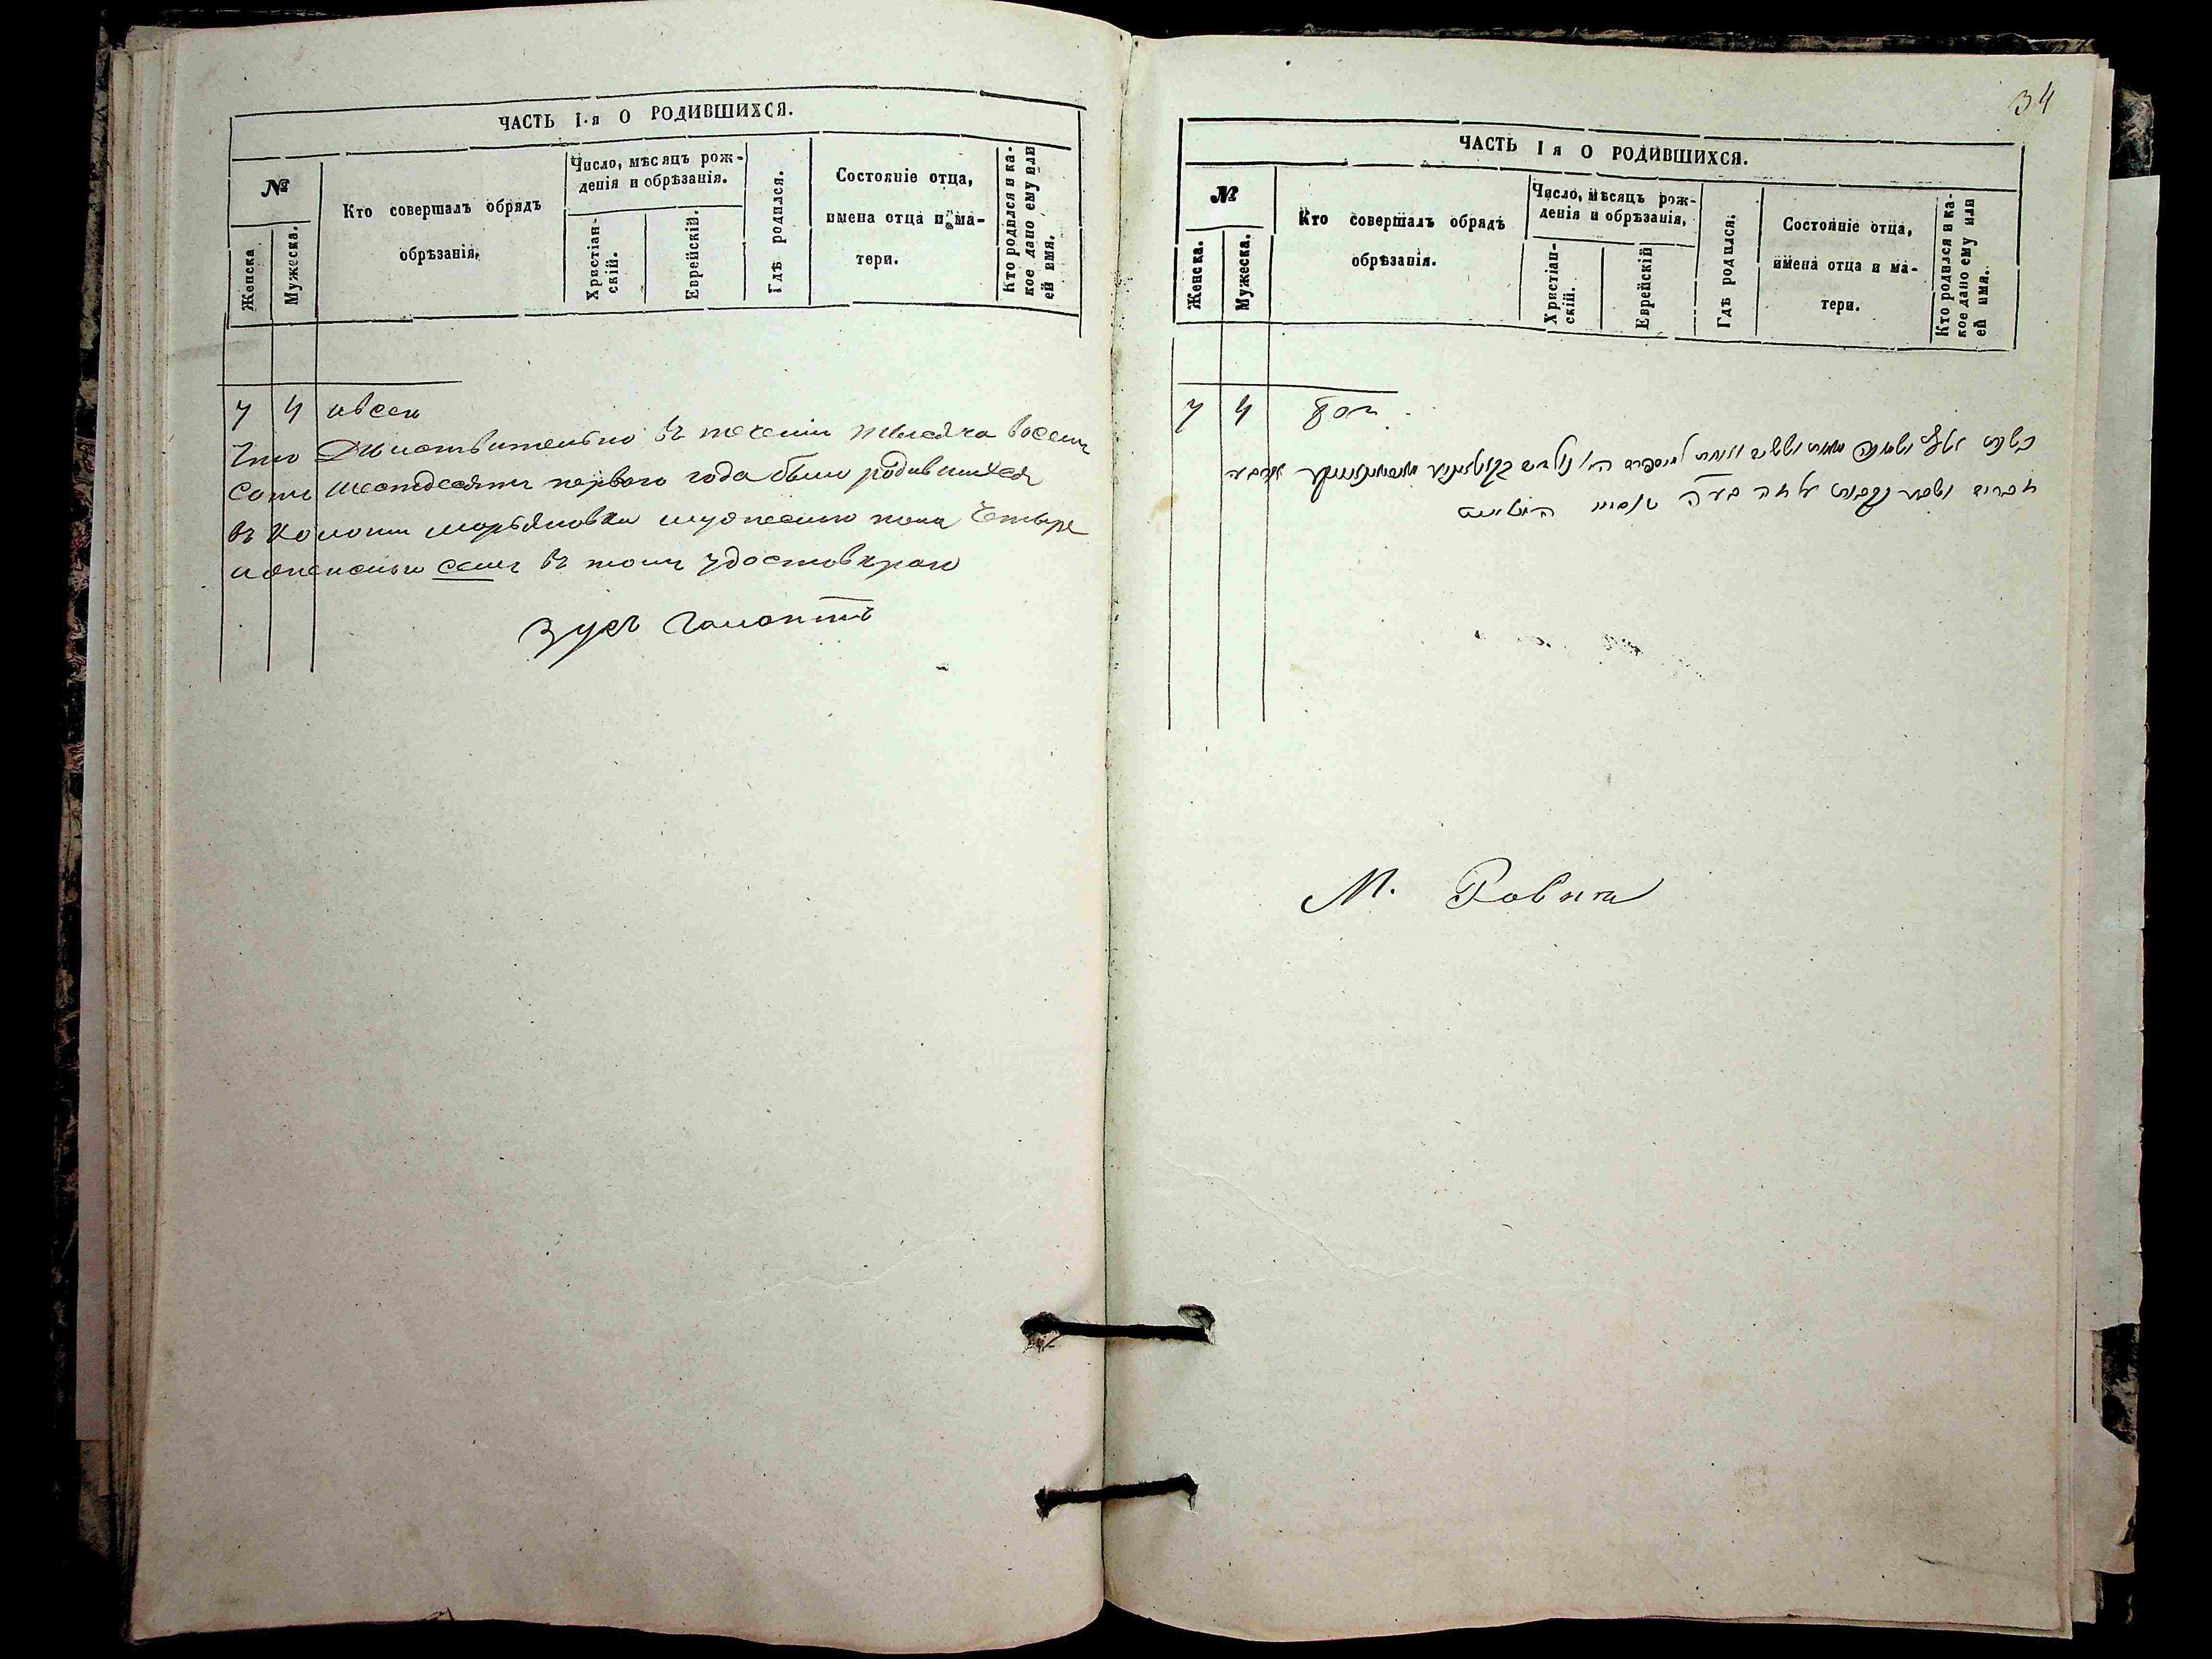 ЧАСТЬ I-я О РОДИВШИХСЯ.
№
Женска
Мужеска.
Кто совершалъ обрядъ
обрѣзанія.
Число, мѣсяцъ рож-
денія и обрѣзанія.
Христіан-
скій.
Еврейскій.
Гдѣ родился.
Состояніе отца,
имена отца и ма-
тери.
Кто родился и ка-
кое дано ему или
ей имя.
7 4 и всего
Что Дѣйствительно въ теченіи тысяча восем
Сотъ шестдесятъ первого года было родившихся
въ Колоніи марьяновки мужеска пола Четыре
и женска Семъ въ томъ удостовѣраю
34
ЧАСТЬ I я О РОДИВШИХСЯ.
№
Женска.
Мужеска.
Кто совершалъ обрядъ
обрѣзанія.
Число, мѣсяцъ рож-
денія и обрѣзанія,
Христіан-
скій.
Еврейскій
Гдѣ родился.
Состояніе отца,
имена отца и ма-
тери.
Кто родился и ка-
кое дано ему или
ей имя.
7 4
М. Рабин